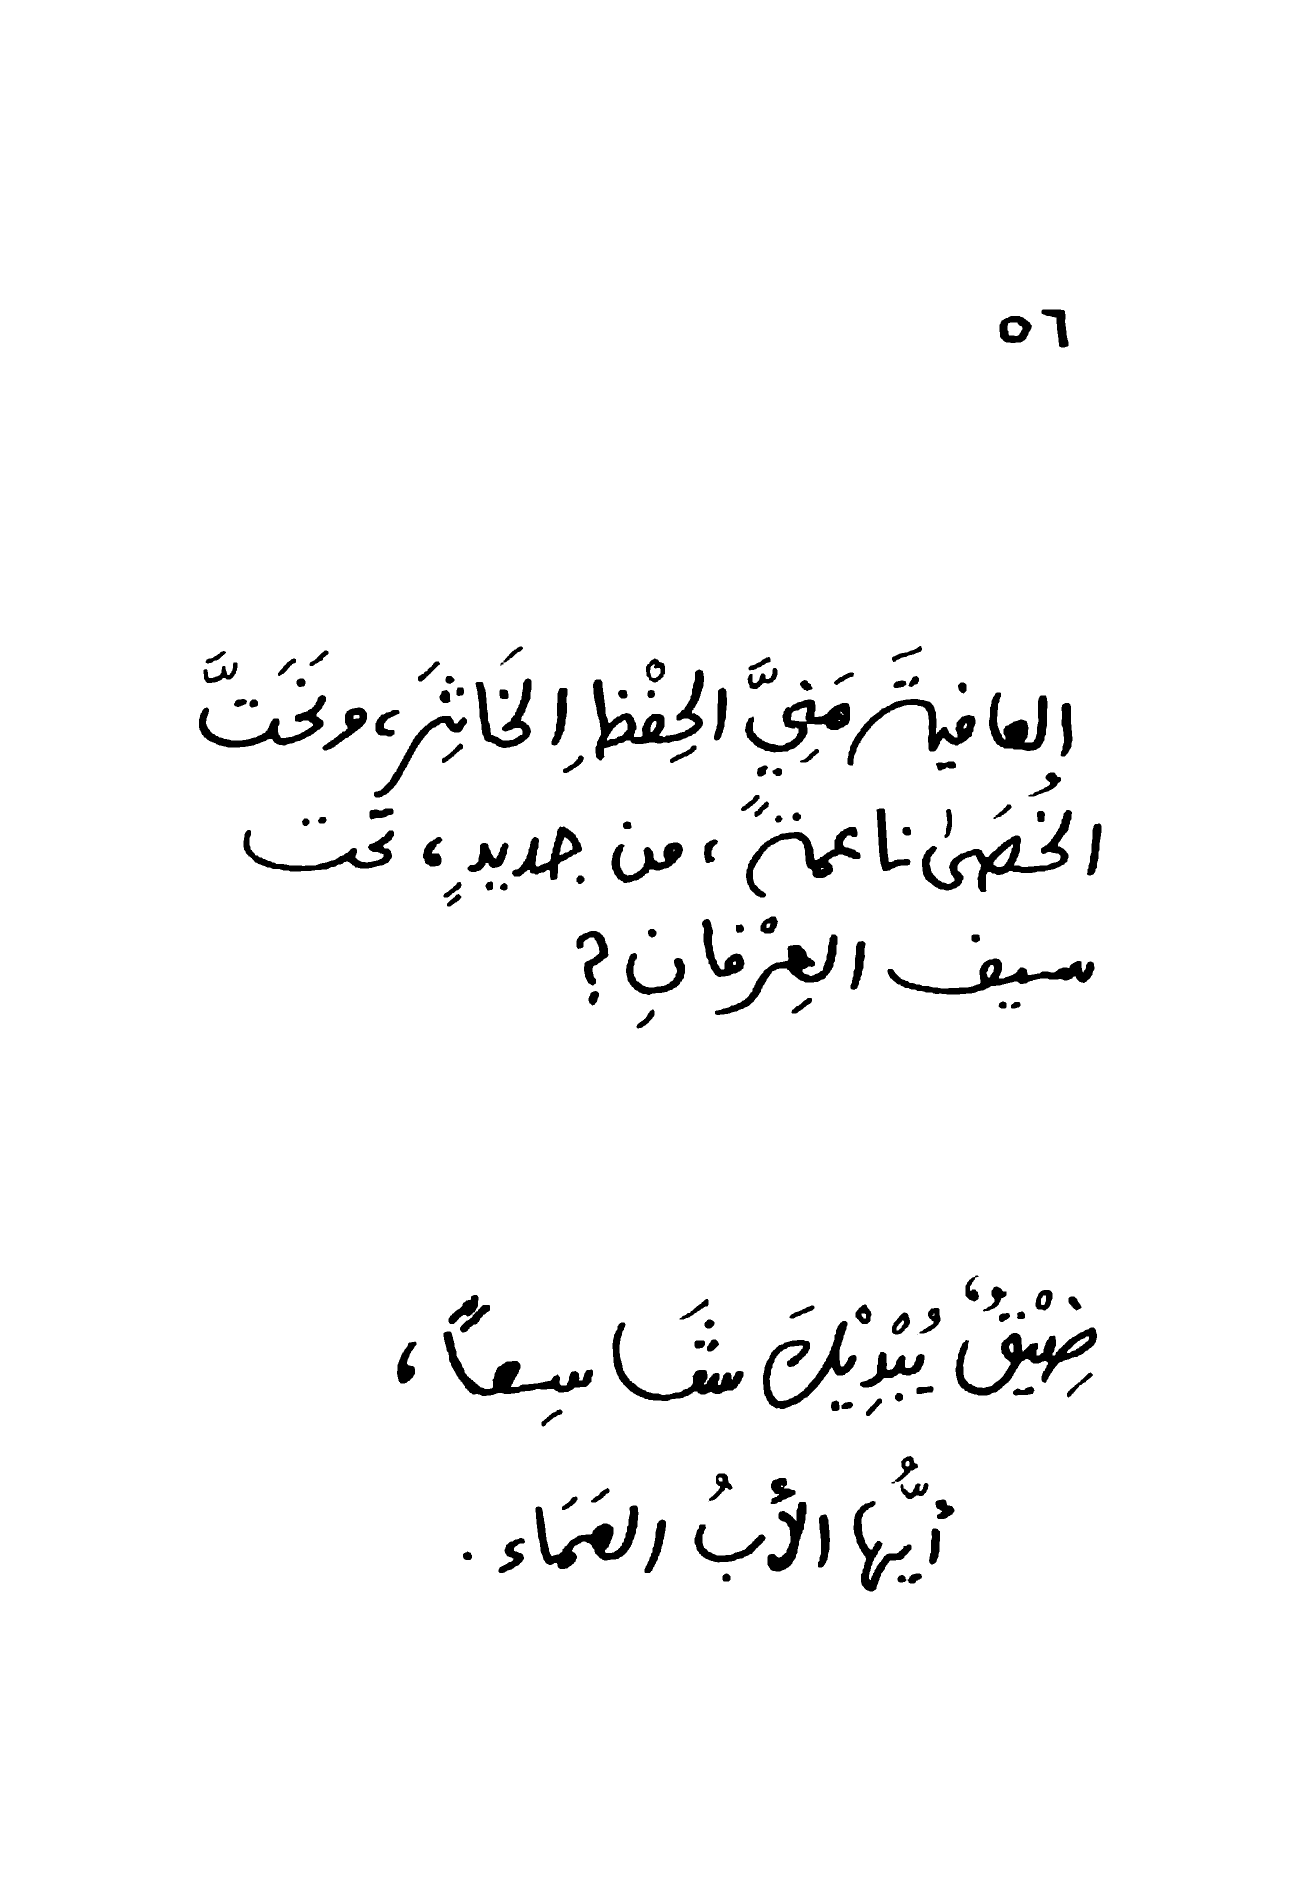 ٥٦
العافيةَ مَنِيَّ الحِفْظِ الخَاثِرَ، ونَخَتَّ
الخُصَىٰ ناعمةً، من جديدٍ، تحت
سيف العِرْفانِ؟
ضِيْقٌ يُبْدِيْكَ شَقَّا سِعاً،
أيُّها الأبُ العَمَاء.